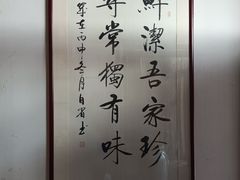 鮮潔吾家珍
尋常獨有味
歲在丙申冬月自省书